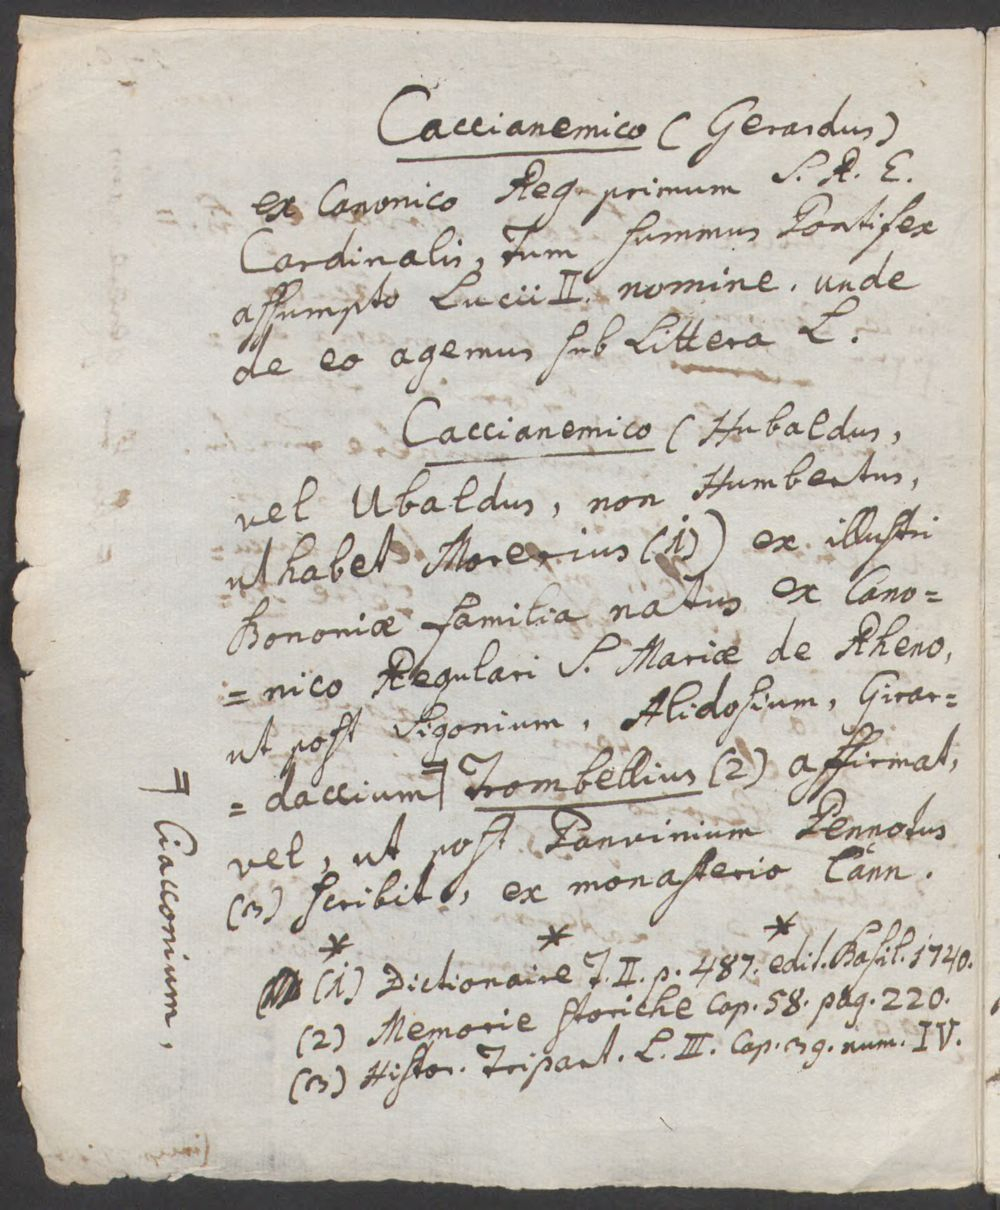 Caccianemico (Gerardus)
ex Canonico Reg. primum S. R. E.
Cardinalis, Tum summus Pontifex
assumpto Lucii II. nomine. unde
de eo agemus sub Littera L.
Caccianemico (Hubaldus,
vel Ubaldus, non Humbertus,
ut habet Morerius (1)) ex illustri
Bononiæ familia natus ex Cano=
=nico Regulari S. Mariæ de Rheno,
ut post Sigonium, Alidosium, Girar=
=daccium Trombellius (2) affirmat,
vel, ut post Panvinium Pennotus
(3) scribit, ex monasterio Cann.
* * *
(1) Dictionaire T. II. p. 487. edit. Basil. 1740.
(2) Memorie storiche Cap. 58. pag. 220.
(3) Histor. Tripart. L. III. Cap. 39. num. IV.
Ciacconium,